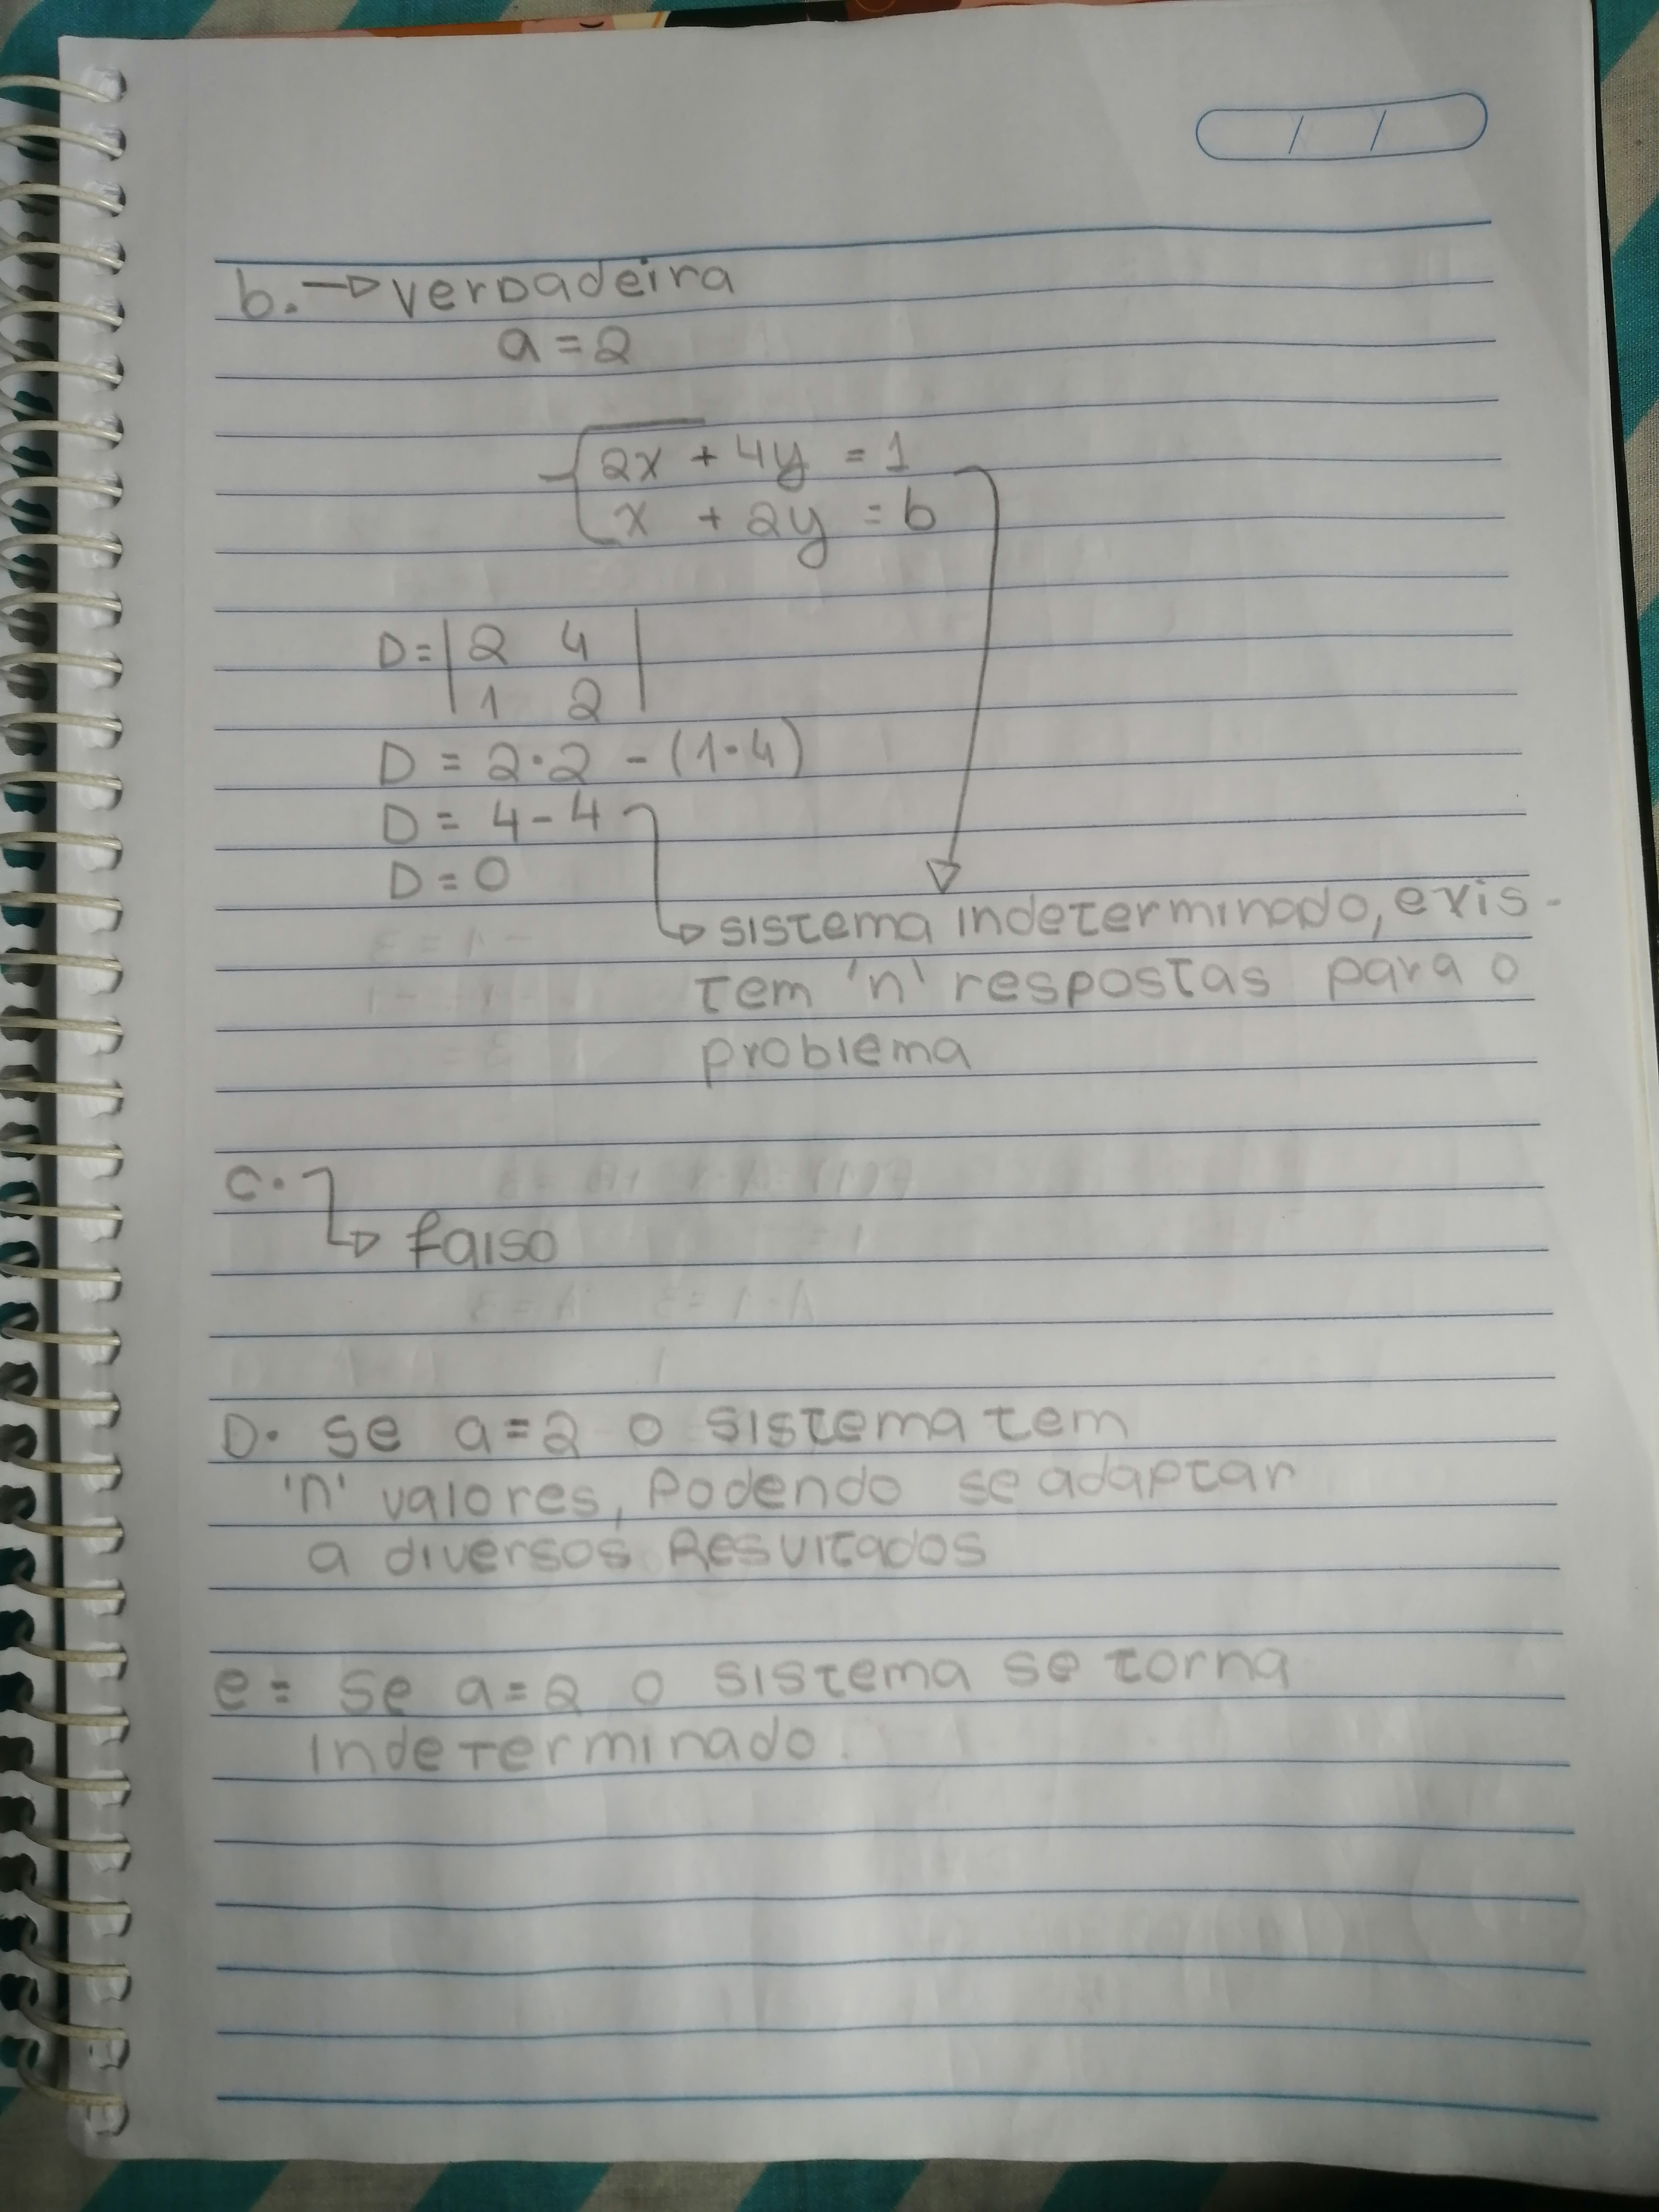 b. → verdadeira
a = 2
2x + 4y = 1
x + 2y = b
D = | 2 4 |
| 1 2 |
D = 2·2 - (1·4)
D = 4 - 4
D = 0
↳ sistema indeterminado, exis-
tem 'n' respostas para o
problema
c.
↳ falso
D. se a=2 o sistema tem
'n' valores, podendo se adaptar
a diversos Resultados
e= se a=2 o sistema se torna
indeterminado.